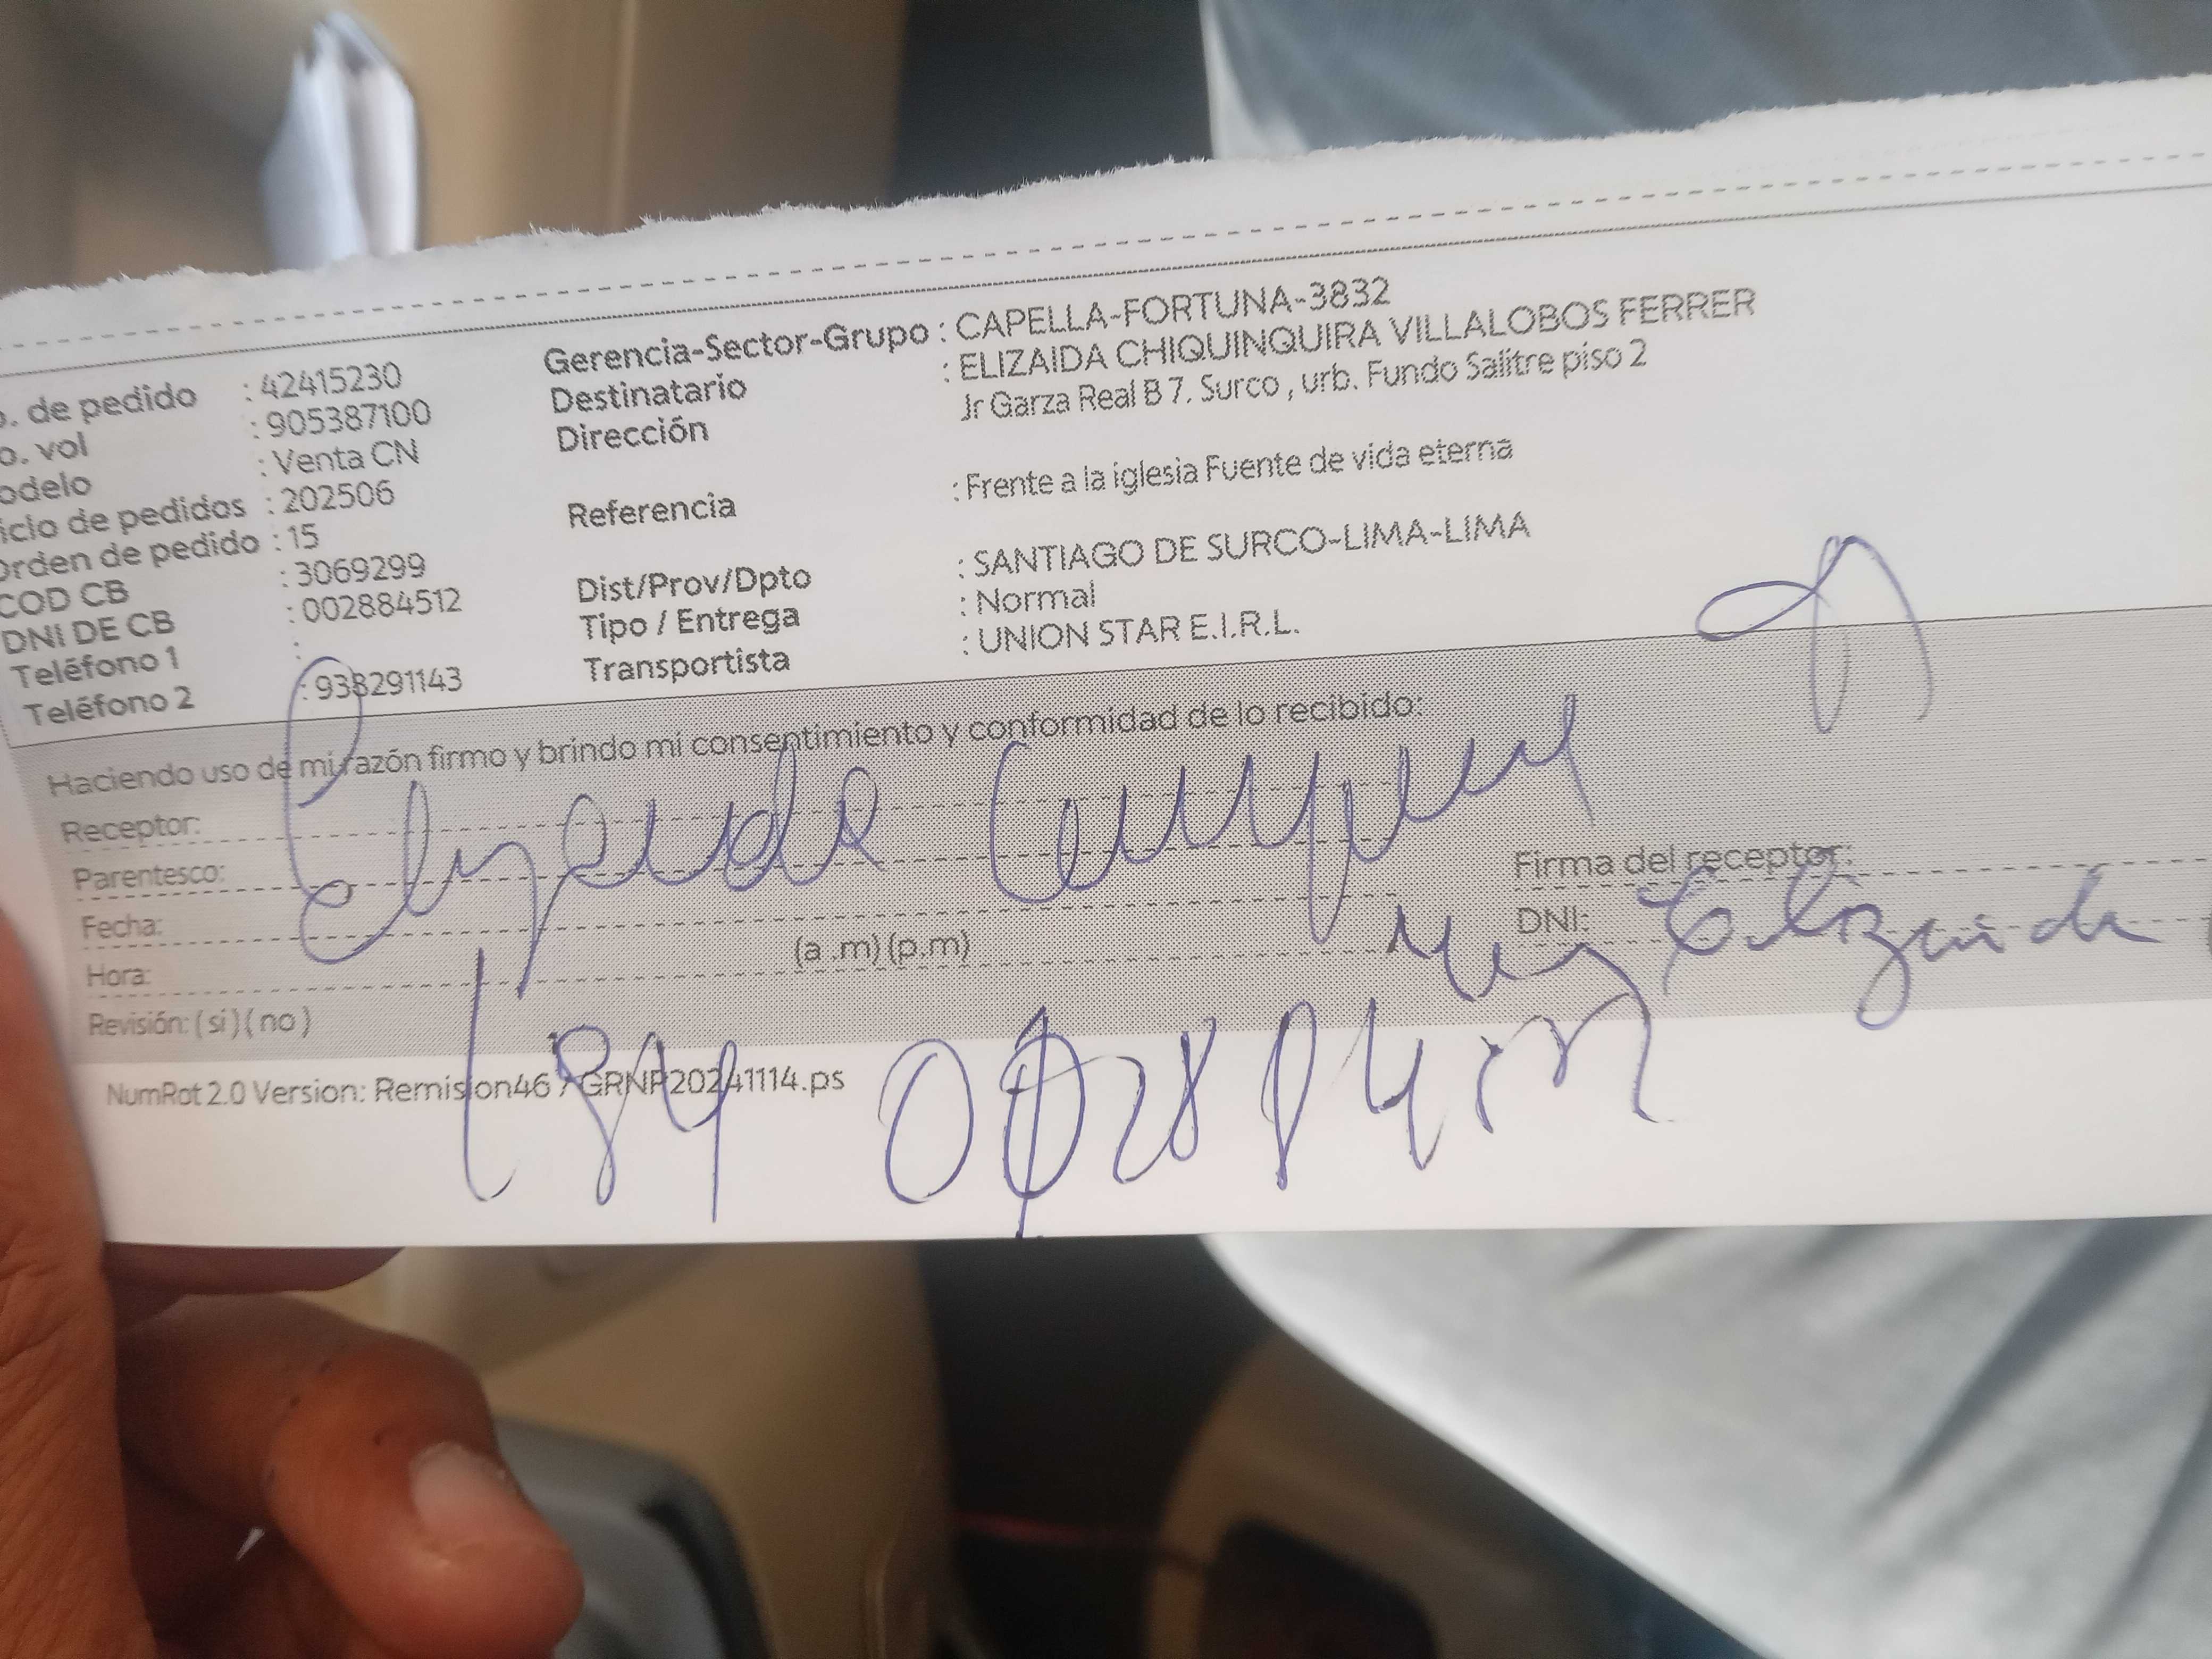 o. de pedido : 42415230
o. vol : 905387100
odelo : Venta CN
iclo de pedidos : 202506
Orden de pedido : 15
COD CB : 3069299
DNI DE CB : 002884512
Teléfono 1 :
Teléfono 2 : 938291143
Gerencia-Sector-Grupo : CAPELLA-FORTUNA-3832
Destinatario : ELIZAIDA CHIQUINQUIRA VILLALOBOS FERRER
Dirección Jr Garza Real B 7. Surco , urb. Fundo Salitre piso 2
Referencia : Frente a la iglesia Fuente de vida eterna
Dist/Prov/Dpto : SANTIAGO DE SURCO-LIMA-LIMA
Tipo / Entrega : Normal
Transportista : UNION STAR E.I.R.L.
Haciendo uso de mi razón firmo y brindo mi consentimiento y conformidad de lo recibido:
Receptor:
Parentesco:
Fecha:
Hora: (a .m) (p.m)
Revisión: ( si ) ( no )
Firma del receptor:
DNI: Elizaida
NumRot 2.0 Version: Remision46 / GRNP20241114.ps